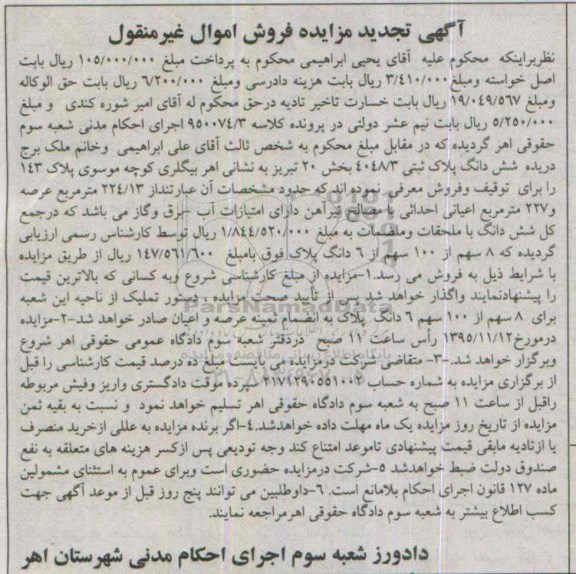 آگهی تجدید مزایده فروش اموال غیرمنقول
نظربراینکه محکوم علیه آقای یحیی ابراهیمی محکوم به پرداخت مبلغ ۱۰۵/۰۰۰/۰۰۰ ریال بابت
اصل خواسته ومبلغ ۳/۴۱۰/۰۰۰ ریال بابت هزینه دادرسی ومبلغ ۶/۲۰۰/۰۰۰ ریال بابت حق الوکاله
ومبلغ ۱۹/۰۴۹/۵۶۷ ریال بابت خسارت تاخیر تادیه درحق محکوم له آقای امیر شوره کندی و مبلغ
۵/۲۵۰/۰۰۰ ریال بابت نیم عشر دولتی در پرونده کلاسه ۹۵۰۰۷۴/۳ اجرای احکام مدنی شعبه سوم
حقوقی اهر گردیده که در مقابل مبلغ محکوم به شخص ثالث آقای علی ابراهیمی وخانم ملک برج
دریده شش دانگ پلاک ثبتی ۴۰۴۸/۳ بخش ۲۰ تبریز به نشانی اهر بیگلری کوچه موسوی پلاک ۱۴۳
را برای توقیف وفروش معرفی نموده‌اند که حدود مشخصات آن عبارتنداز ۲۲۴/۱۳ مترمربع عرصه
و۲۲۷ مترمربع اعیانی احداثی با مصالح تیرآهن دارای امتیازات آب -برق وگاز می باشد که درجمع
کل شش دانگ با ملحقات وملضمات به مبلغ ۱/۸۴۴/۵۲۰/۰۰۰ ریال توسط کارشناس رسمی ارزیابی
گردیده که ۸ سهم از ۱۰۰ سهم از ۶ دانگ پلاک فوق بامبلغ ۱۴۷/۵۶۱/۶۰۰ ریال از طریق مزایده
با شرایط ذیل به فروش می رسد.۱-مزایده از مبلغ کارشناسی شروع وبه کسانی که بالاترین قیمت
را پیشنهادنمایند واگذار خواهد شد پس از تأیید صحت مزایده ، دستور تملیک از ناحیه این شعبه
برای ۸ سهم از ۱۰۰ سهم ۶ دانگ پلاک به انضمام ثمینه عرصه و اعیان صادر خواهد شد-۲-مزایده
درمورخ۱۳۹۵/۱۱/۱۲ رأس ساعت ۱۱ صبح دردفتر شعبه سوم دادگاه عمومی حقوقی اهر شروع
وبرگزار خواهد شد.-۳- متقاضی شرکت درمزایده می بایست مبلغ ده درصد قیمت کارشناسی را قبل
از برگزاری مزایده به شماره حساب ۲۱۷۱۲۹۰۵۵۱۰۰۲ سپرده موقت دادگستری واریز وفیش مربوطه
راقبل از ساعت ۱۱ صبح به شعبه سوم دادگاه حقوقی اهر تسلیم خواهد نمود و نسبت به بقیه ثمن
مزایده از تاریخ روز مزایده یک ماه مهلت داده خواهدشد.۴-اگر برنده مزایده به عللی ازخرید منصرف
یا ازتادیه مابقی قیمت پیشنهادی تاموعد امتناع کند وجه تودیعی پس ازکسر هزینه های متعلقه به نفع
صندوق دولت ضبط خواهدشد ۵-شرکت درمزایده حضوری است وبرای عموم به استثنای مشمولین
ماده ۱۲۷ قانون اجرای احکام بلامانع است. ۶-داوطلبین می توانند پنج روز قبل از موعد آگهی جهت
کسب اطلاع بیشتر به شعبه سوم دادگاه حقوقی اهرمراجعه نمایند.
دادورز شعبه سوم اجرای احکام مدنی شهرستان اهر
ParsNamadData